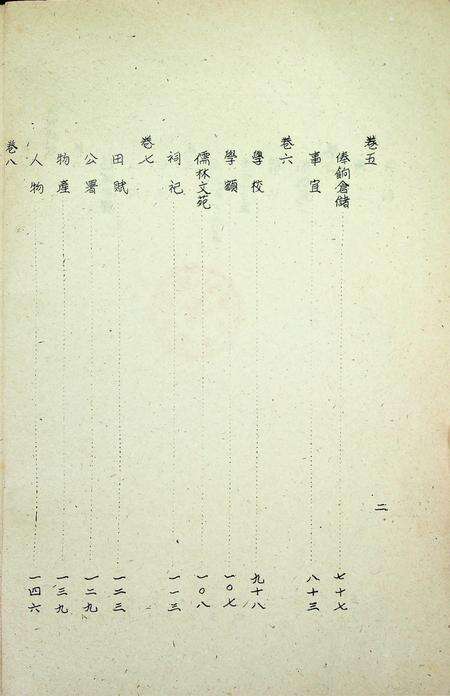 卷五
俸餉倉儲 七十七
事宜 八十三
卷六
學校 九十八
學額 一〇七
儒林文苑 一〇八
祠祀 一一三
卷七
田賦 一二三
公署 一二九
物產 一三九
卷八
人物 一四六
二